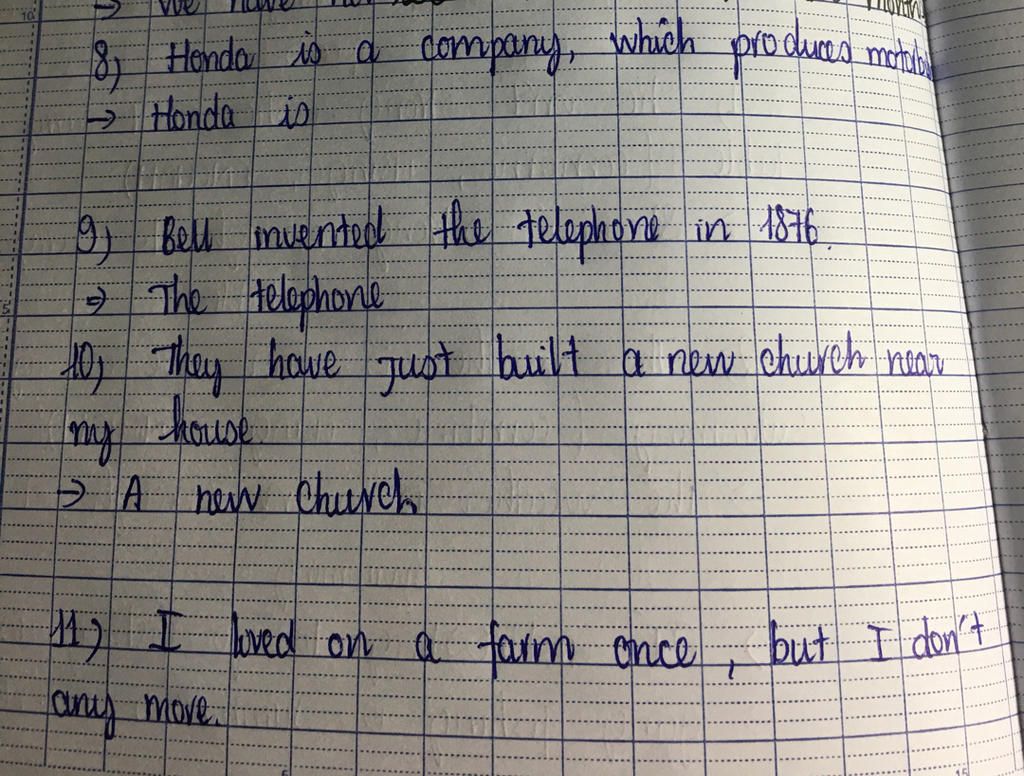 → We have
8) Honda is a company, which produces
→ Honda is
9) Bell invented the telephone in 1876.
→ The telephone
10) They have just built a new church near
my house
→ A new church
11) I loved on a farm once, but I don't
any move.